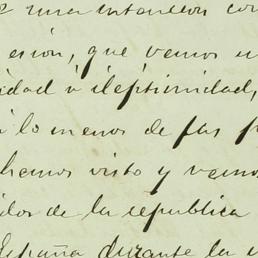 una intancion con
esion, que vemos en
idad ó ilegitimidad,
á lo menos de fas f
hemos visto y vemos
idos de la republica
España durante la